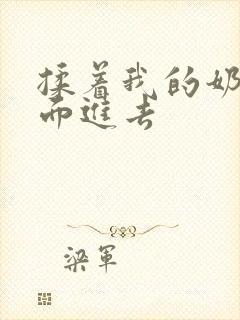 揉着我的奶
而進去
梁軍